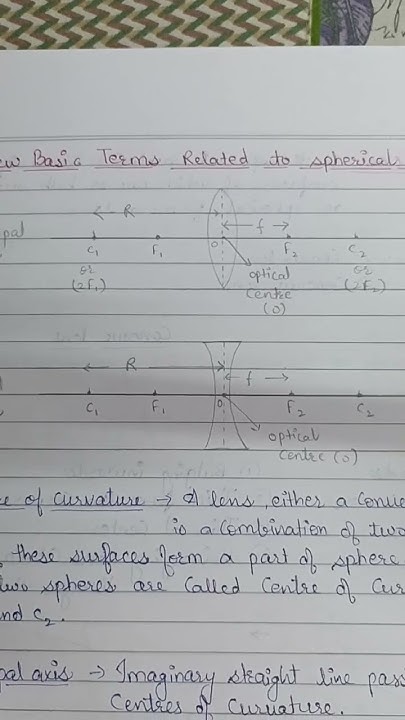 ew Basic Terms Related to spherical
R
f
pal
C₁ F₁ O F₂ C₂
or or
(2F₁) (2F₂)
optical
Centre
(O)
R
f
C₁ F₁ O F₂ C₂
optical
Centre (O)
re of curvature → A lens, either a Conve
is a combination of two
these surfaces form a part of sphere
two spheres are called Centre of Cur
nd C₂.
pal axis → Imaginary straight line pas
Centres of Curvature.